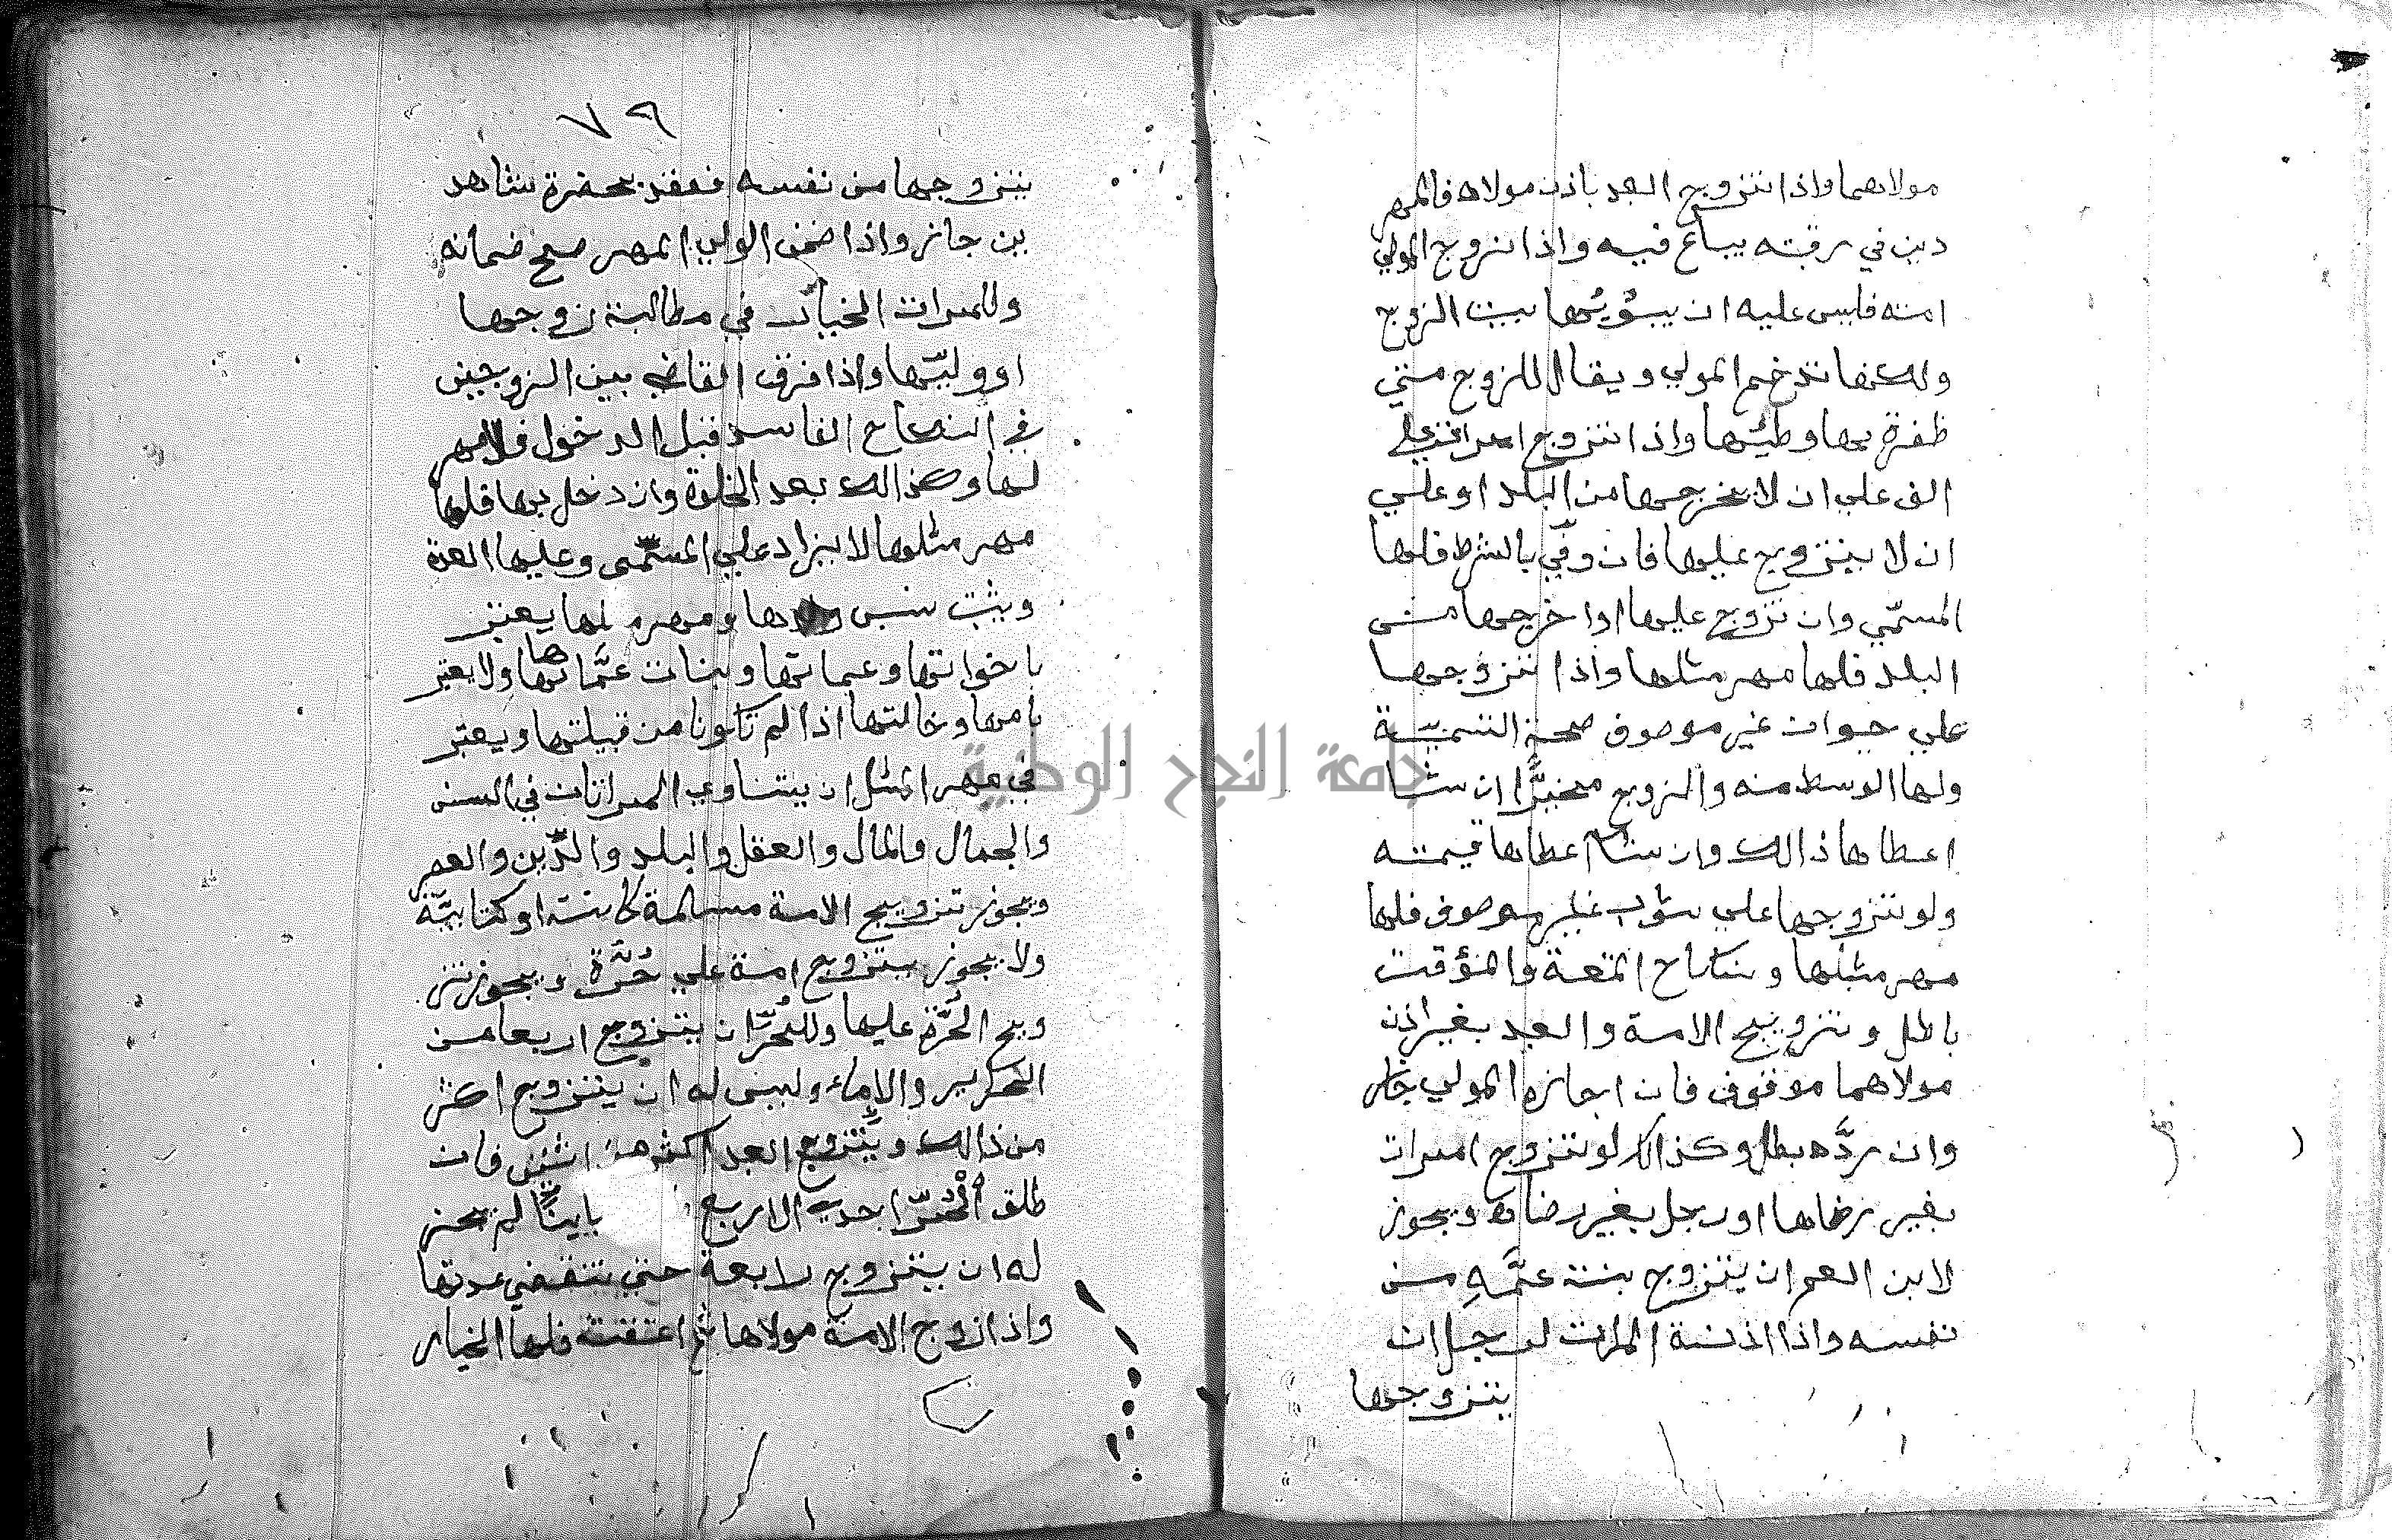 مولاهما واذا تتزوج العبد باذن مولاه فالمهر
دين في رقبته يباع فيه واذا تزوج المولي
امته فليس عليه ان يبؤيُها بيت الزوج
ولكنها تخدم المولي ويقال للزوج متي
ظفرة بها وطيتها واذا تتزوج امراة علي
الف علي ان لا يخرجها من البلد او علي
ان لا يتزوج عليها فان وفّي بالشرط فلها
المسمّي وان تزوج عليها او اخرجها من
البلد فلها مهر مثلها واذا تتزوجها
علي حيوان غير موصوف صحة التسميّة
ولها الوسط منه والزوج مخيرًّا ان شا
اعطاها ذالك وان شا اعطاها قيمته
ولو تتزوجها علي ثوب غير موصوف فلها
مهر مثلها ونكاح المتعة والمؤقت
باطل وتزويج الامة والعبد بغير اذن
مولاهما موقوف فان اجازه المولي جاز
وان ردَّه بطل وكذالك لو تتزوج امرات
بغير رضاها او رجل بغير رضاه ويجوز
لابن العم ان يتزوج بنت عمَّهِ من
نفسه واذا اذنة المرات لرجل ان
يتزوجها
٧٩
يتزوجها من نفسه فعقد بحضرة شاهد
ين جاز واذا ضمن الولي المهر صح ضمانه
وللمرات الخيار في مطالبة زوجها
او وليّها واذا فرق القاضي بين الزوجين
في النكاح الفاسد قبل الدخول فلا مهر
لها وكذالك بعد الخلوة وان دخل بها فلها
مهر مثلها لا يزاد علي المسمّى وعليها العدة
ويثبت نسب ولدها ومهر مثلها يعتبر
باخواتها وعماتها وبنات عمَّاتها ولا يعتبر
بامها وخالتها اذا لم تكونا من قبيلتها ويعتبر
في مهر المثل ان يتساوي المراتان في السن
والجمال والمال والعقل والبلد والدّين والعصر
ويجوز تزويج الامة مسلمة كانت او كتابيّة
ولا يجوز يتزوج امة علي حُرَّة ويجوز تز
ويج الحُرَّة عليها وللحُرّ ان يتزوج اربعا من
الحراير والاماء وليس له ان يتزوج اكثر
من ذالك ويتزوج العبد اكثر من اثنين فان
طلق الحُرّ احدي الاربع باينًا لم يجز
له ان يتزوج رابعة حتي تنقضي عدتها
واذا زوج الامة مولاها ثم اعتقت فلها الخيار
جامعة النجاح الوطنية